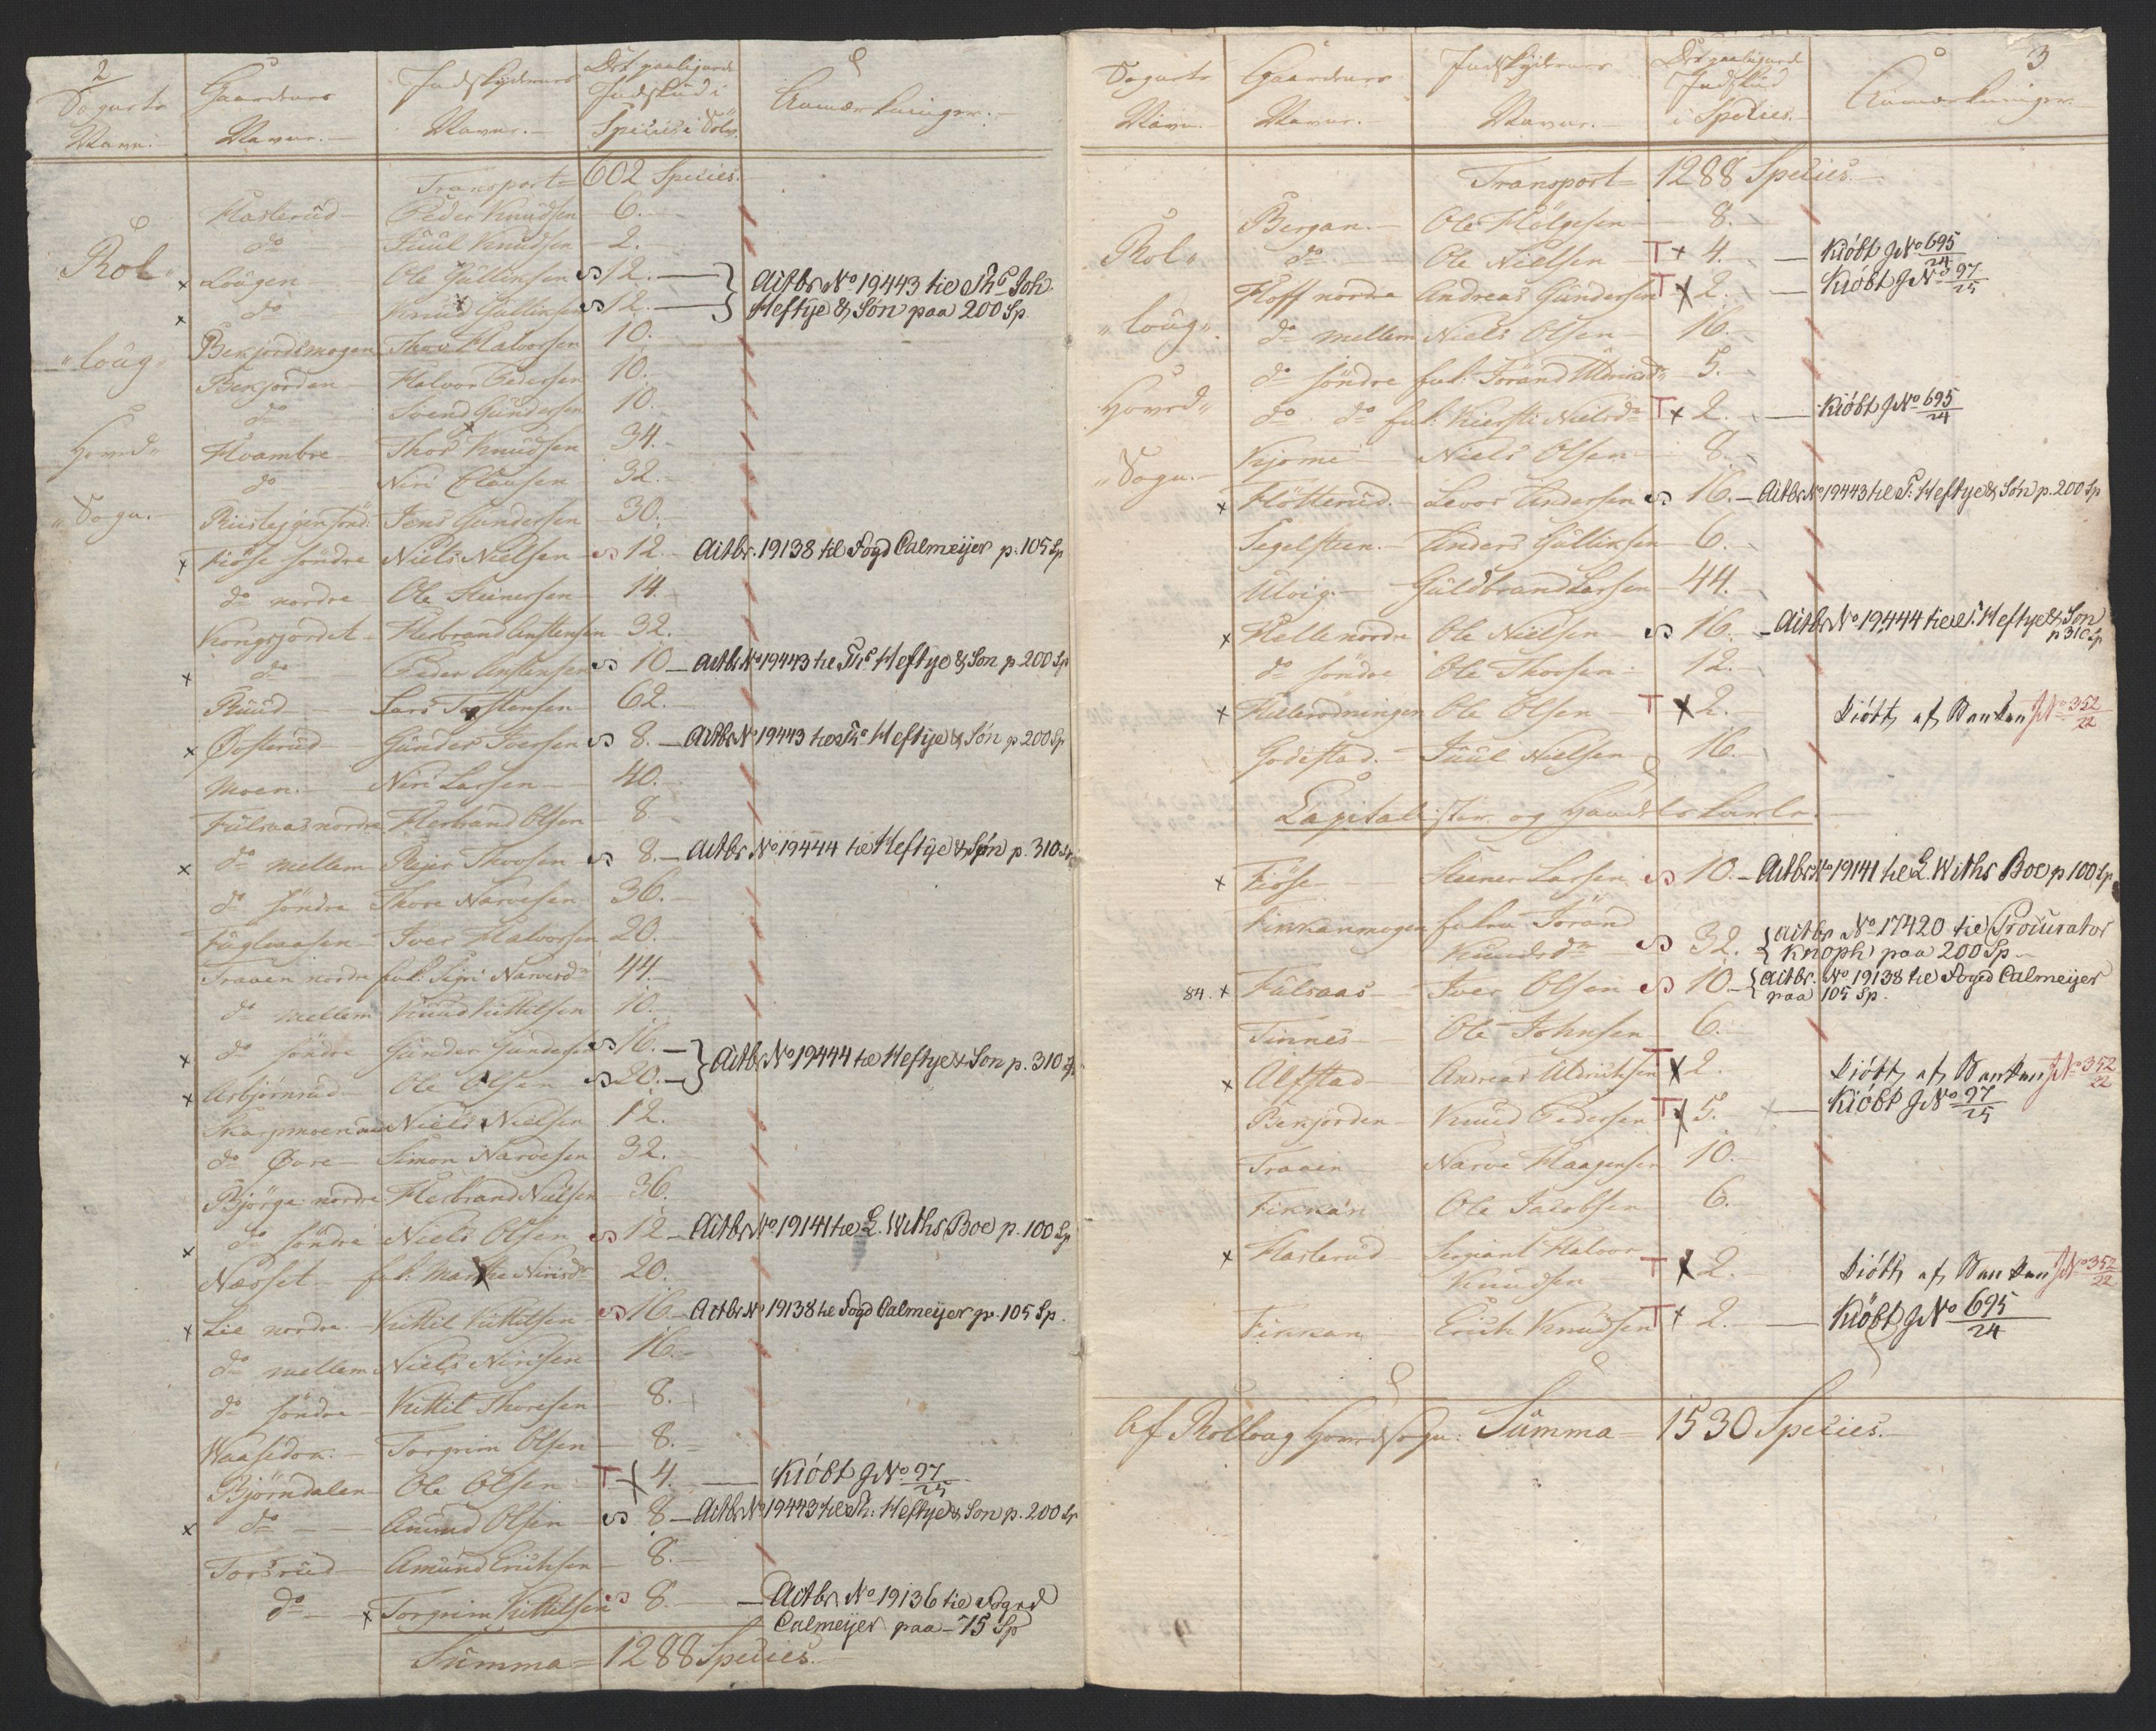 2
Sognets Gaardenes Indskydernes Det paaligende
Indskud i Anmærkninger.
Navn. Navne. Navne. Species i Sølv
Transport 602 Species.
Hasterud Peder Knudsen 6.
do Juul Knudsen 2.
Rol- x Lougen Ole Gullinsen 12. Actbr No 19443 til Ths Joh.
x do Knud Gullinsen 12. Heftye & Søn paa 200 Sp.
Bekjordsmogen Thov Halvorsen 10.
"loug" Bekjorden Halvor Pedersen 10.
do Svend Gundersen 10.
Hoved- Hvambre Thor Knudsen 34.
do Niri Clausen 32.
"Sogn. Riisteigen sønd: Jens Gundersen 30.
x Fiøse søndre Niels Nielsen 12. Actbr. 19138 til Fogd Calmeijer p. 105 Sp
do nordre Ole Steinersen 14.
Kongsjordet Herbrand Anstensen 32.
x do Peder Anstensen 10 Actbr No 19443 til Ths Heftye & Søn p. 200 Sp
Ruud Lars Torstensen 62.
x Øvsterud Gunder Iversen 8. Actbr No 19443 til Ths Heftye & Søn p 200 Sp
Moen. Niri Larsen 40.
Fulsaas nordre Herbrand Olsen 8
x do mellem Rejer Thorsen 8. Actbr No 19444 til Heftye & Søn p. 310 Sp
do søndre Thore Narvesen 36.
Fuglaasen Iver Halvorsen 20.
Traaen nordre fuk: Sigri Narvesdr 44.
do mellem Knud Kittilsen 10.
x do søndre Gunder Gundersen 16. Actbr No 19444 til Heftye & Søn p. 310 Sp
x Asbjørnrud Ole Olsen 20.
Skarpmoen Niels Nielsen 12.
do Øvre Simon Narvesen 32.
Bjørge nordre Herbrand Nielsen 36.
x do søndre Niels Olsen 12 Actbr No 19141 til L. Withs Boe p. 100 Sp
Næsset fuk: Marthe Nirisdr 20.
x Lie nordre Kittil Kittilsen 16. Actbr No 19138 til Fogd Calmeijer p. 105 Sp.
do mellem Niels Nirisen 16.
do søndre Kittil Thoresen 8.
Waasedon. Torgrim Olsen 8.
Bjørndalen Ole Olsen T x 4. Kiöbt J No 97/25
x do Amund Olsen 8 Actbr No 19443 til Th: Heftye & Søn p. 200 Sp
Torsrud Amund Erichsen 8.
do x Torgrim Kittilsen 8. Actbr No 19136 til Foged
Calmeijer paa 75 Sp
Summa 1288 Species.
3
Sognets Gaardenes Indskydernes Det paaligende
Indskud Anmærkninger.
Navn. Navne. Navne. i Species.
Transport 1288 Species.
Bergan. Ole Helgesen 8.
Rol" do Ole Nielsen T x 4. Kiöbt J No 695/24
Hoff nordre Andreas Gundersen T x 2. Kiöbt J No 97/25
"loug" do mellem Niels Olsen 16.
do søndre fuk: Jørand Uldricsdr 5.
Hoved" do do fuk: Kiersti Nielsdr T x 2. Kiöbt J No 695/24
Kjome Niels Olsen 8.
"Sogn. x Fløtterud. Levor Andersen 16. Actbr No 19443 til T. Heftye & Søn p. 200 Sp
Segelsteen. Anders Gullinsen 6.
Ulvig. Guldbrand Larsen 44.
x Helle nordre Ole Nielsen 16. Actbr No 19444 til T. Heftye & Søn
p 310 Sp
do søndre Ole Thorsen 12.
x Hellerødningen Ole Olsen T x 2. Kiöbt af Banken J No 352/22
Godestad. Juul Nielsen 16.
Capitalister og Handelskarle.
x Fiøse Steener Larsen 10. Actbr No 19141 til L. Withs Boe p 100 Sp
Finkanmogen fukn Jørand
Knudsdr 32. Actbr No 17420 til Procurator
Knoph paa 200 Sp
84. x Fulsaas Iver Olsen 10. Actbr. No 19138 til Foged Calmeijer
paa 105 Sp.
Tinnes Ole Johnsen 6.
x Alfstad Andreas Uldrichsen T x 2. Kiöbt af Banken J No 352/22
Bekjorden Knud Pedersen T x 5. Kiöbt J No 97/25
Traaen Narve Haagensen 10.
Finkan Ole Jacobsen 6.
x Hasterud Sergiant Halvor
Knudsen T x 2. Kiöbt af Banken J No 352/22
Finkan Erich Knudsen T x 2. Kiöbt J No 695/24
Af Rolloug Hovedsogn: Summa 1530 Species.